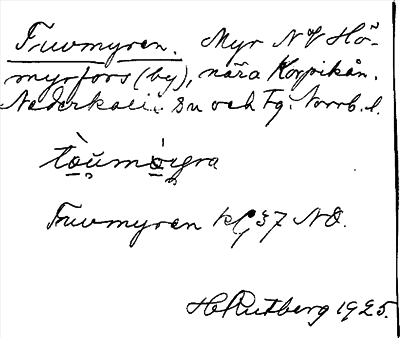 Fruvmyren. Myr NV Hö-
myrfors (by), nära Korpikån.
Nederkalix Sn och Tg. Norrb. l.
Fruvmyren kbl 37 NO.
H Rutberg 1925.